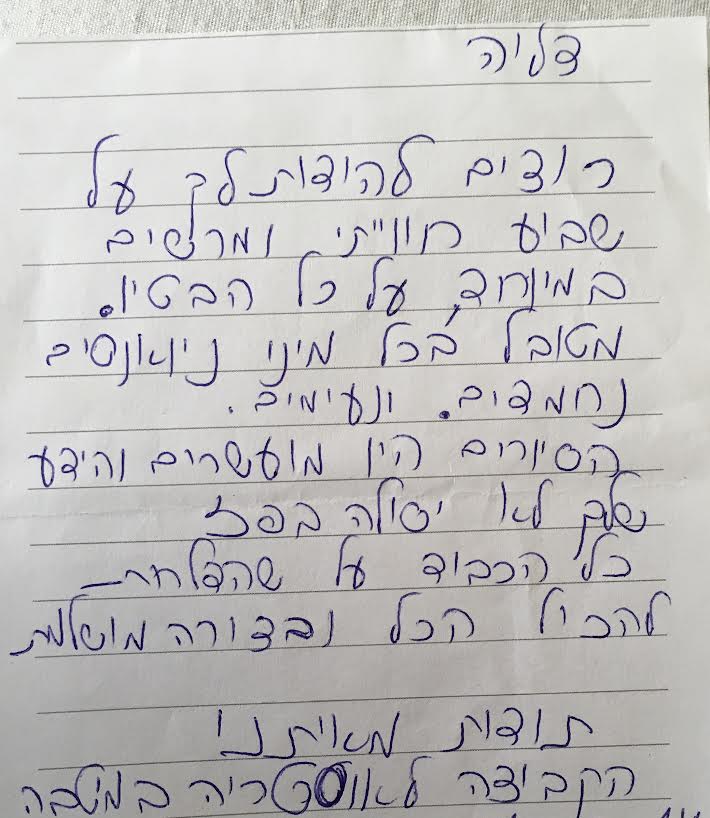 דליה
רוצים להודות לך על
שבוע חוויתי ומרשים
במיוחד, על כל הבטיו.
מטובל בכל מיני ניואנסים
נחמדים. ונעימים.
הסיורים היו מועשרים והידע
שלך לא יסולה בפז
כל הכבוד על שהצלחת
להכיל הכל ובצורה מושלמת
תודות מאיתנו
הקבוצה לאוסטריה